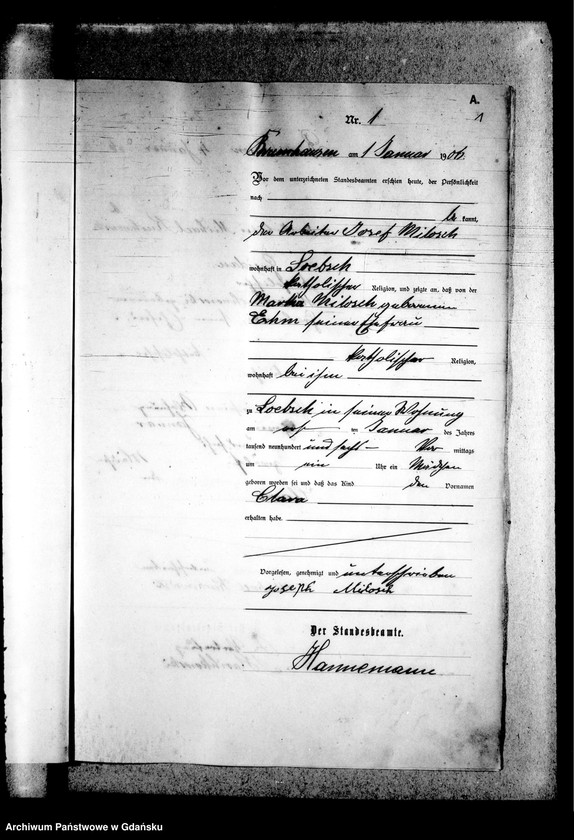 A.
Nr. 1
1
am 1 Januar 1906.
Vor dem unterzeichneten Standesbeamten erschien heute, der Persönlichkeit
nach
be kannt,
der Arbeiter Josef Milosch
wohnhaft in Loebsch
katholischer Religion, und zeigte an, daß von der
Martha Milosch geborenen
Ehm seiner Ehefrau
katholischer Religion,
wohnhaft bei ihm
zu Loebsch in seiner Wohnung
am Januar des Jahres
tausend neunhundert und sechs Vor mittags
um ein Uhr ein Mädchen
geboren worden sei und daß das Kind den Vornamen
Clara
erhalten habe.
Vorgelesen, genehmigt und unterschrieben
Joseph Milosch
Der Standesbeamte.
Hannemann
Archiwum Państwowe w Gdańsku